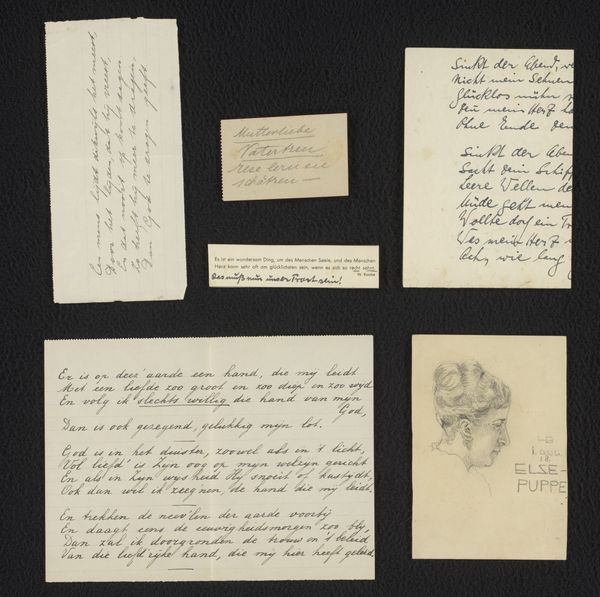 Een mens lijdt dikwijls het meest
Door het lijden dat hij vreest
En dat nooit op komt dagen
Zo heeft hij meer te dragen
Dan God te dragen geeft
Mutterliebe
Vatertreu
lerne sie
schätzen —
Es ist ein wundersam Ding, um des Menschen Seele, und des Menschen
Herz kann sehr oft am glücklichsten sein, wenn es sich so recht sehnt.
W. Raabe
Das muß nun unser Trost sein!
Sinkt der Abend, ve
Nicht mein Sehnen
Glücklos
mein Herz
Ohne Ende den
Sinkt der Aben
Sucht dein Schiff
Leere Wellen de
Müde geht mein
Wollte doch ein Tr
Wes mein Herz
Ach, wie lang
Er is op deez' aarde een hand, die mij leidt
Met een liefde zoo groot en zoo diep en zoo wijd
En volg ik slechts willig die hand van mijn
God,
Dan is ook gezegend, gelukkig mijn lot.
God is in het duister, zoowel als in 't licht,
Vol liefd' is Zijn oog op mijn welzijn gericht
En als in Zijn wijsheid Hij snoeit of kastijdt,
Ook dan wil ik zeegnen, de hand die mij leidt,
En trekken de nev'len der aarde voorbij
En daagt eens de eeuwigheidsmorgen zoo blij,
Dan zal ik doorgronden de trouw en 't beleid
Van die liefd'rijke hand, die mij hier heeft geleid
LG
1 AUG.
18
ELSE-
PUPPE